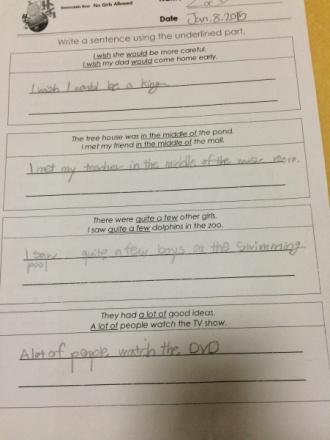 Berenstain Bear No Girls Allowed
Date Jan.8.2010
Write a sentence using the underlined part.
I wish she would be more careful.
I wish my dad would come home early.
I wish I would be a king
The tree house was in the middle of the pond.
I met my friend in the middle of the mall.
I met my teacher in the middle of the music room.
There were quite a few other girls.
I saw quite a few dolphins in the zoo.
I saw quite a few boys at the swimming
pool
They had a lot of good ideas.
A lot of people watch the TV show.
A lot of people watch the DVD